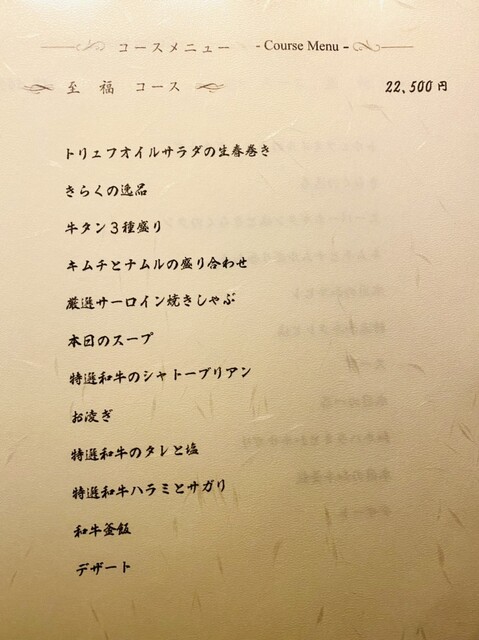 コースメニュー - Course Menu -
至福 コース 22,500円
トリュフオイルサラダの生春巻き
きらくの逸品
牛タン3種盛り
キムチとナムルの盛り合わせ
厳選サーロイン焼きしゃぶ
本日のスープ
特選和牛のシャトーブリアン
お凌ぎ
特選和牛のタレと塩
特選和牛ハラミとサガリ
和牛釜飯
デザート